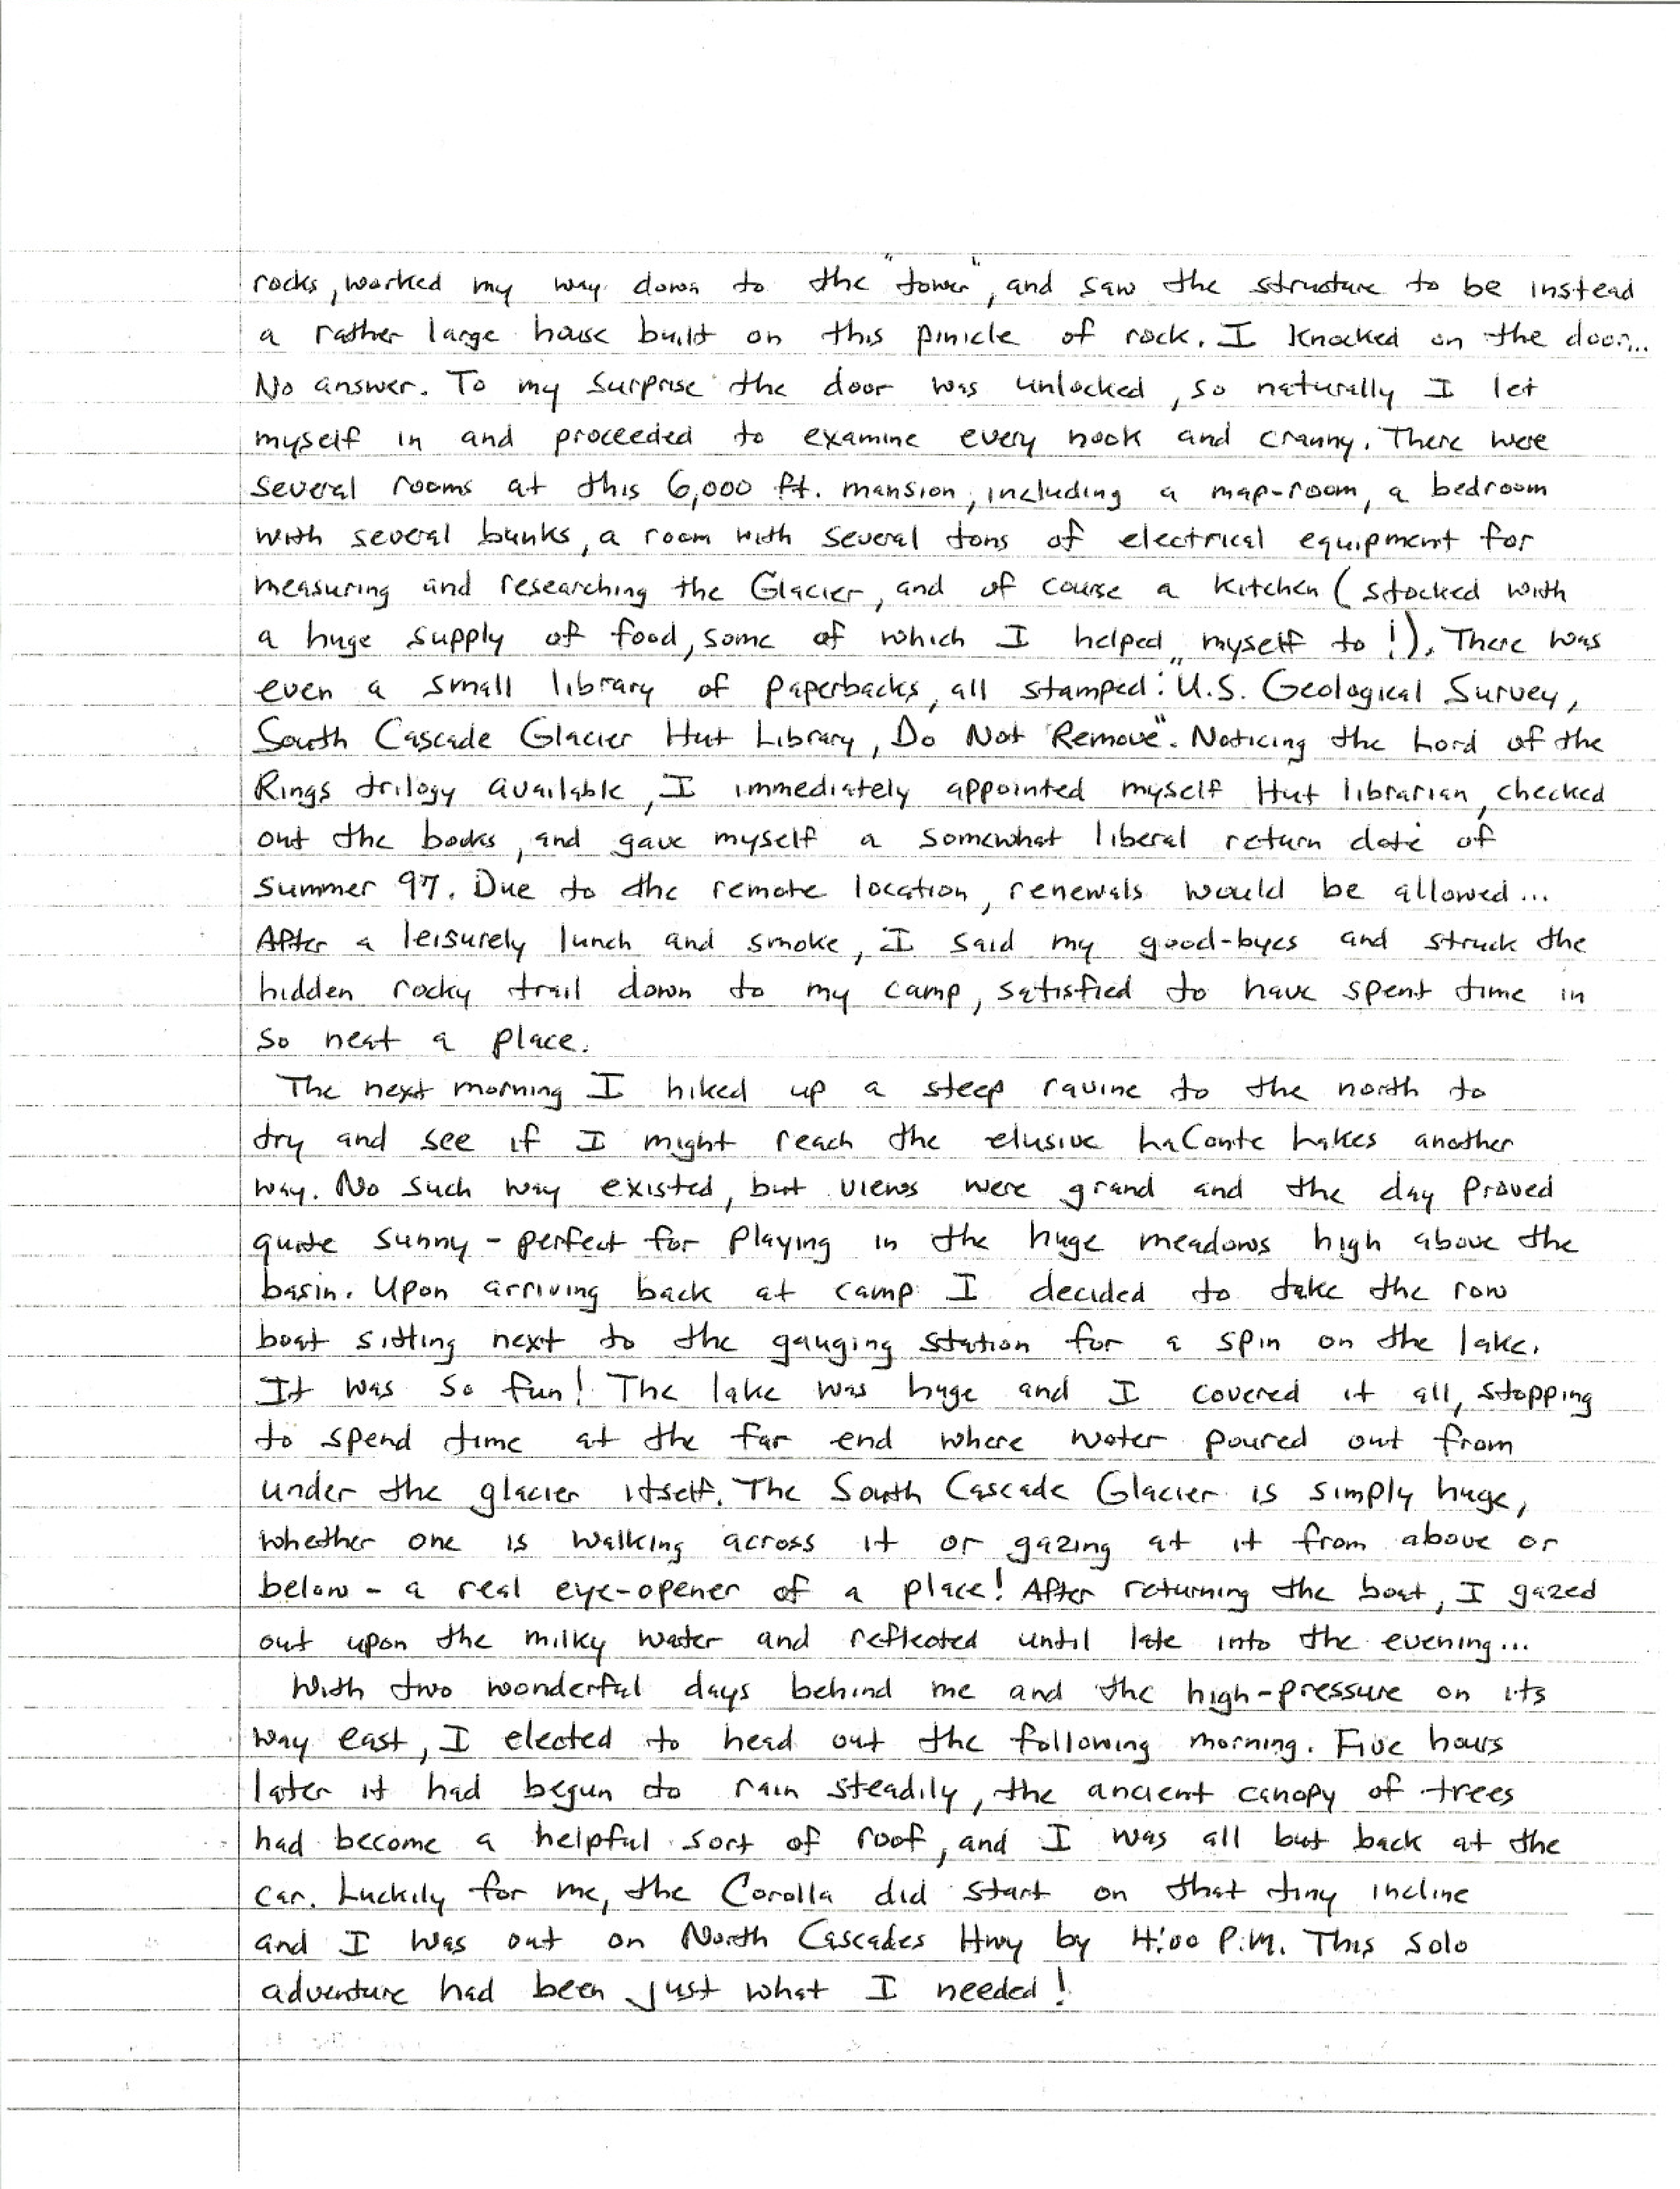 rocks, worked my way down to the "tower", and saw the structure to be instead
a rather large house built on this pinicle of rock. I knocked on the door...
No answer. To my surprise the door was unlocked, so naturally I let
myself in and proceeded to examine every nook and cranny. There were
several rooms at this 6,000 ft. mansion, including a map-room, a bedroom
with several bunks, a room with several tons of electrical equipment for
measuring and researching the Glacier, and of course a kitchen (stocked with
a huge supply of food, some of which I helped myself to!). There was
even a small library of paperbacks, all stamped: "U.S. Geological Survey,
South Cascade Glacier Hut Library, Do Not Remove". Noticing the Lord of the
Rings trilogy available, I immediately appointed myself Hut librarian, checked
out the books, and gave myself a somewhat liberal return date of
summer 97. Due to the remote location, renewals would be allowed...
After a leisurely lunch and smoke, I said my good-byes and struck the
hidden rocky trail down to my camp, satisfied to have spent time in
so neat a place.
The next morning I hiked up a steep ravine to the north to
try and see if I might reach the elusive LaConte Lakes another
way. No such way existed, but views were grand and the day proved
quite sunny - perfect for playing in the huge meadows high above the
basin. Upon arriving back at camp I decided to take the row
boat sitting next to the gauging station for a spin on the lake.
It was so fun! The lake was huge and I covered it all, stopping
to spend time at the far end where water poured out from
under the glacier itself. The South Cascade Glacier is simply huge,
whether one is walking across it or gazing at it from above or
below - a real eye-opener of a place! After returning the boat, I gazed
out upon the milky water and reflected until late into the evening...
With two wonderful days behind me and the high-pressure on its
way east, I elected to head out the following morning. Five hours
later it had begun to rain steadily, the ancient canopy of trees
had become a helpful sort of roof, and I was all but back at the
car. Luckily for me, the Corolla did start on that tiny incline
and I was out on North Cascades Hwy by 4:00 P.M. This solo
adventure had been just what I needed!